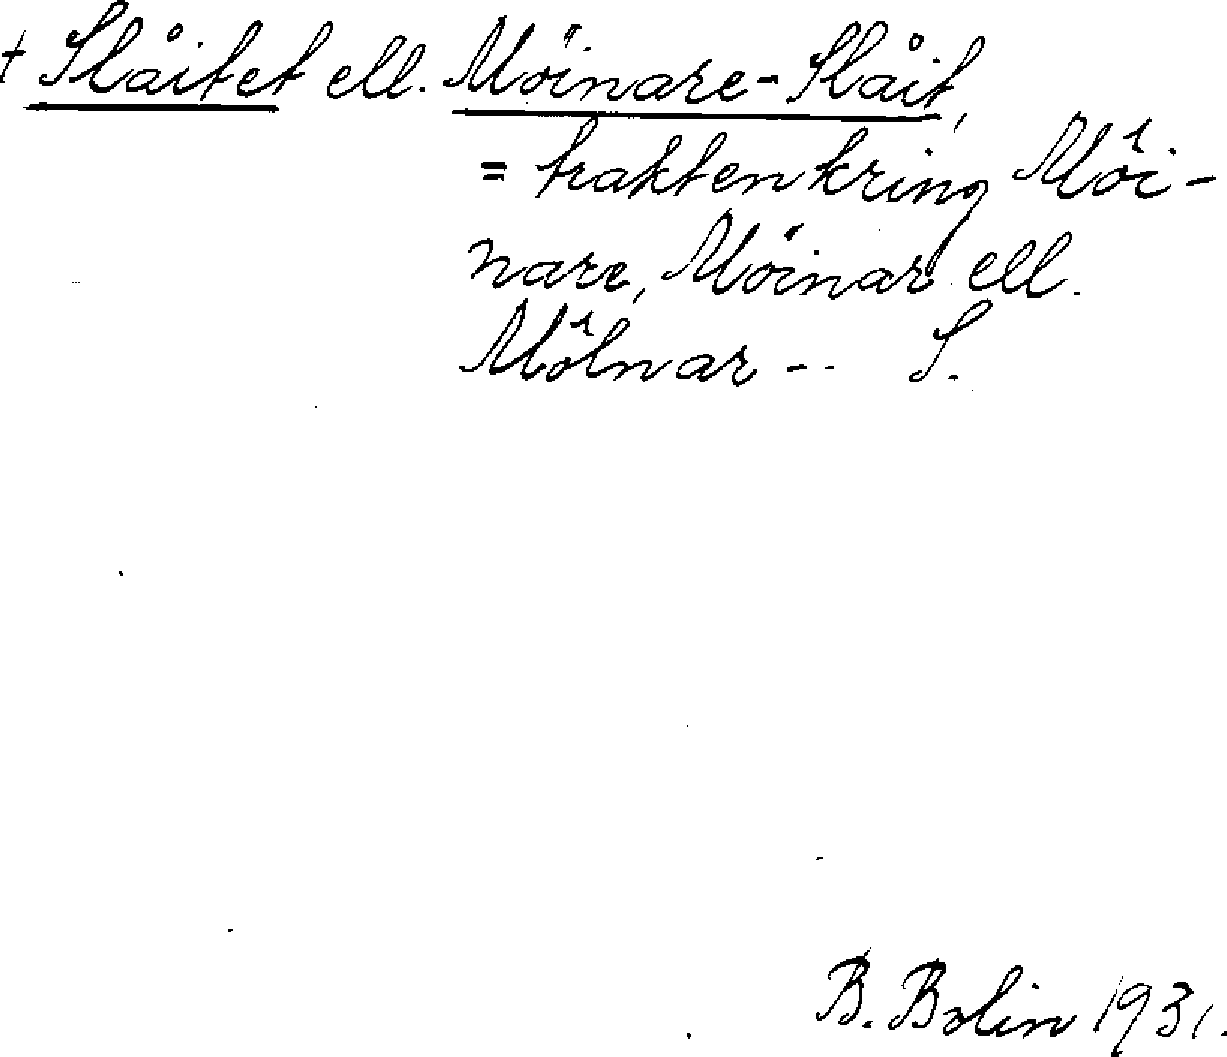 + Slåitet ell. Möinare-Slåit,
= trakten kring Möi-
nare, Möinar ell.
Mölnar -- S.
B. Bolin 1931.